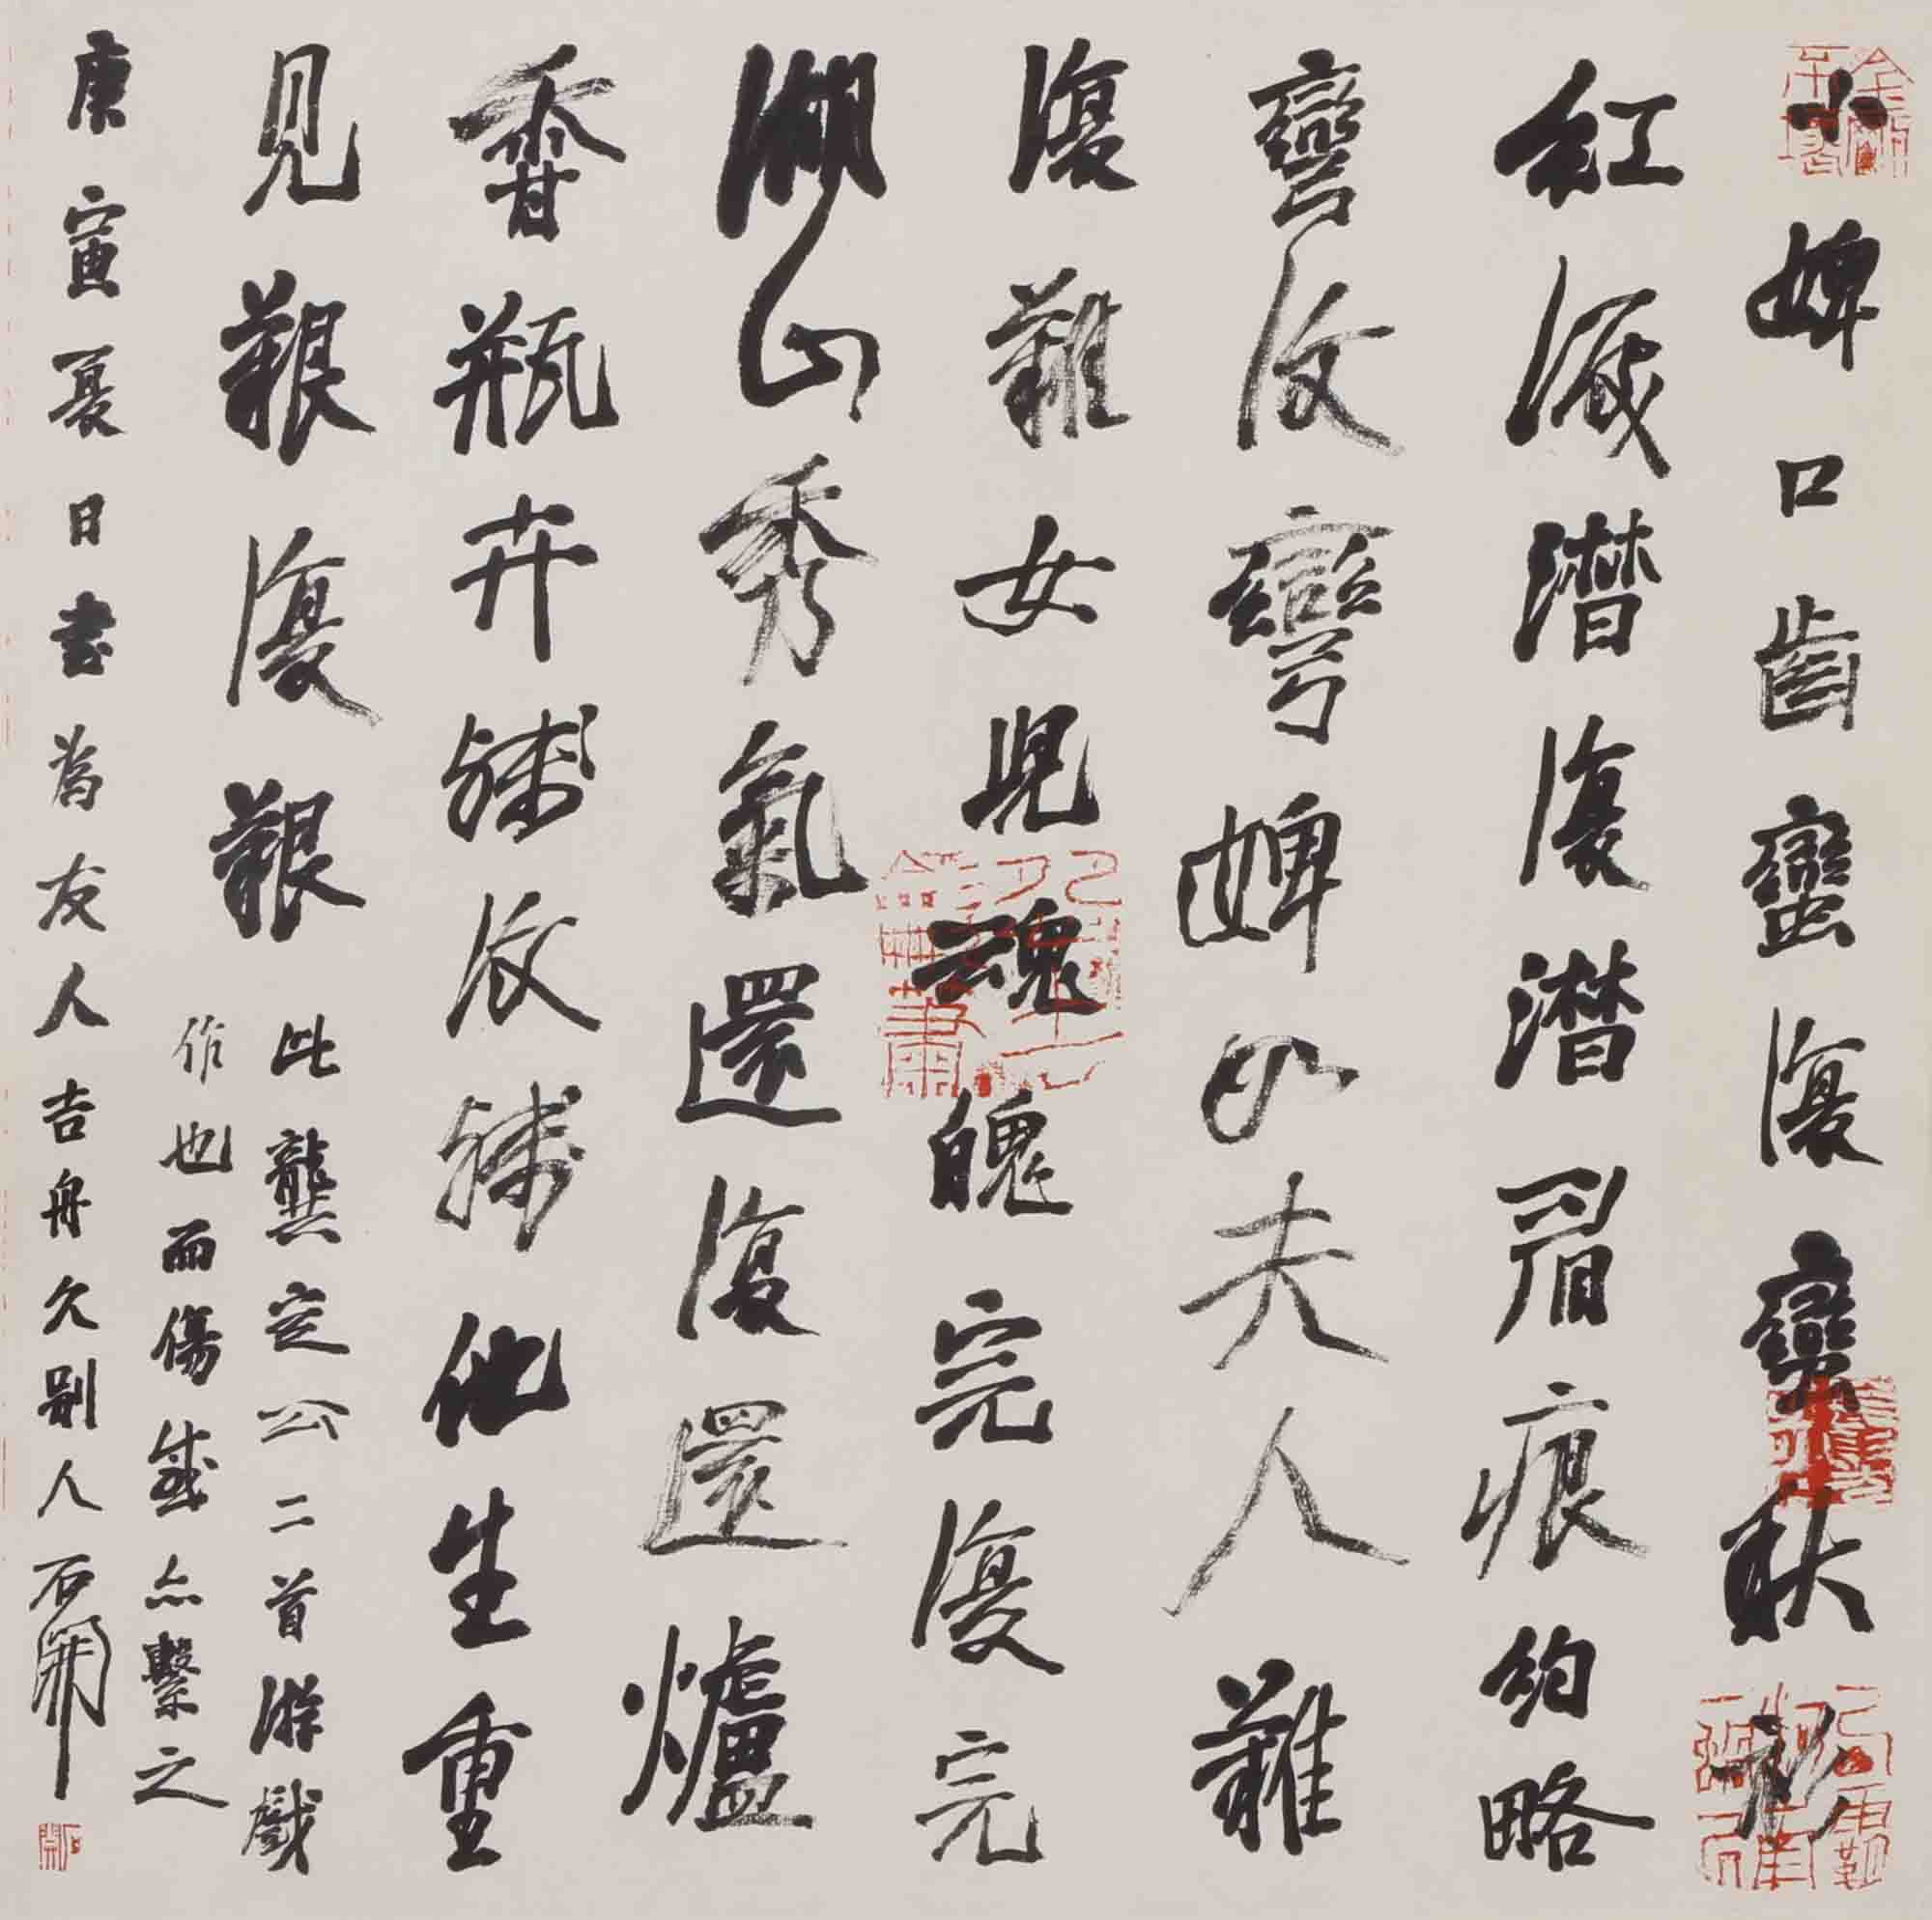 小婢口齒蠻復蠻秋衫
紅淚潸復潸眉痕約略
彎復彎婢如夫人難
復難女兒魂魄完復完
湖山秀氣還復還爐
香瓶卉殘復殘他生重
見艱復艱
此龔定公二首游戲
作也而傷感亦繫之
庚寅夏日書為友人吉舟久別人石開
石開